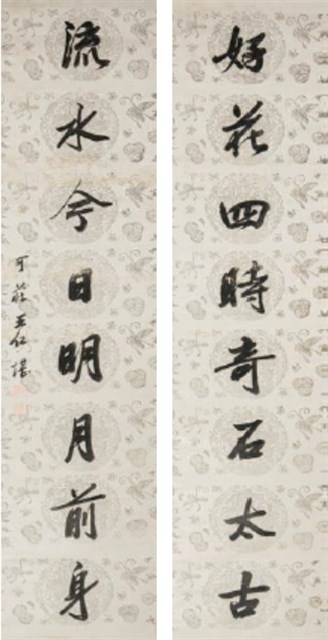 好花四時奇石太古
流水今日明月前身
可莊王仁堪